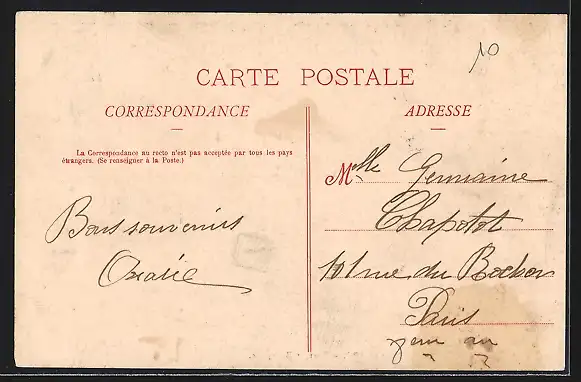 10
CARTE POSTALE
CORRESPONDANCE
La Correspondance au recto n'est pas acceptée par tous les pays
étrangers. (Se renseigner à la Poste.)
Bons souvenirs
ADRESSE
Mlle Germaine
Chapotot
101 rue du
Paris